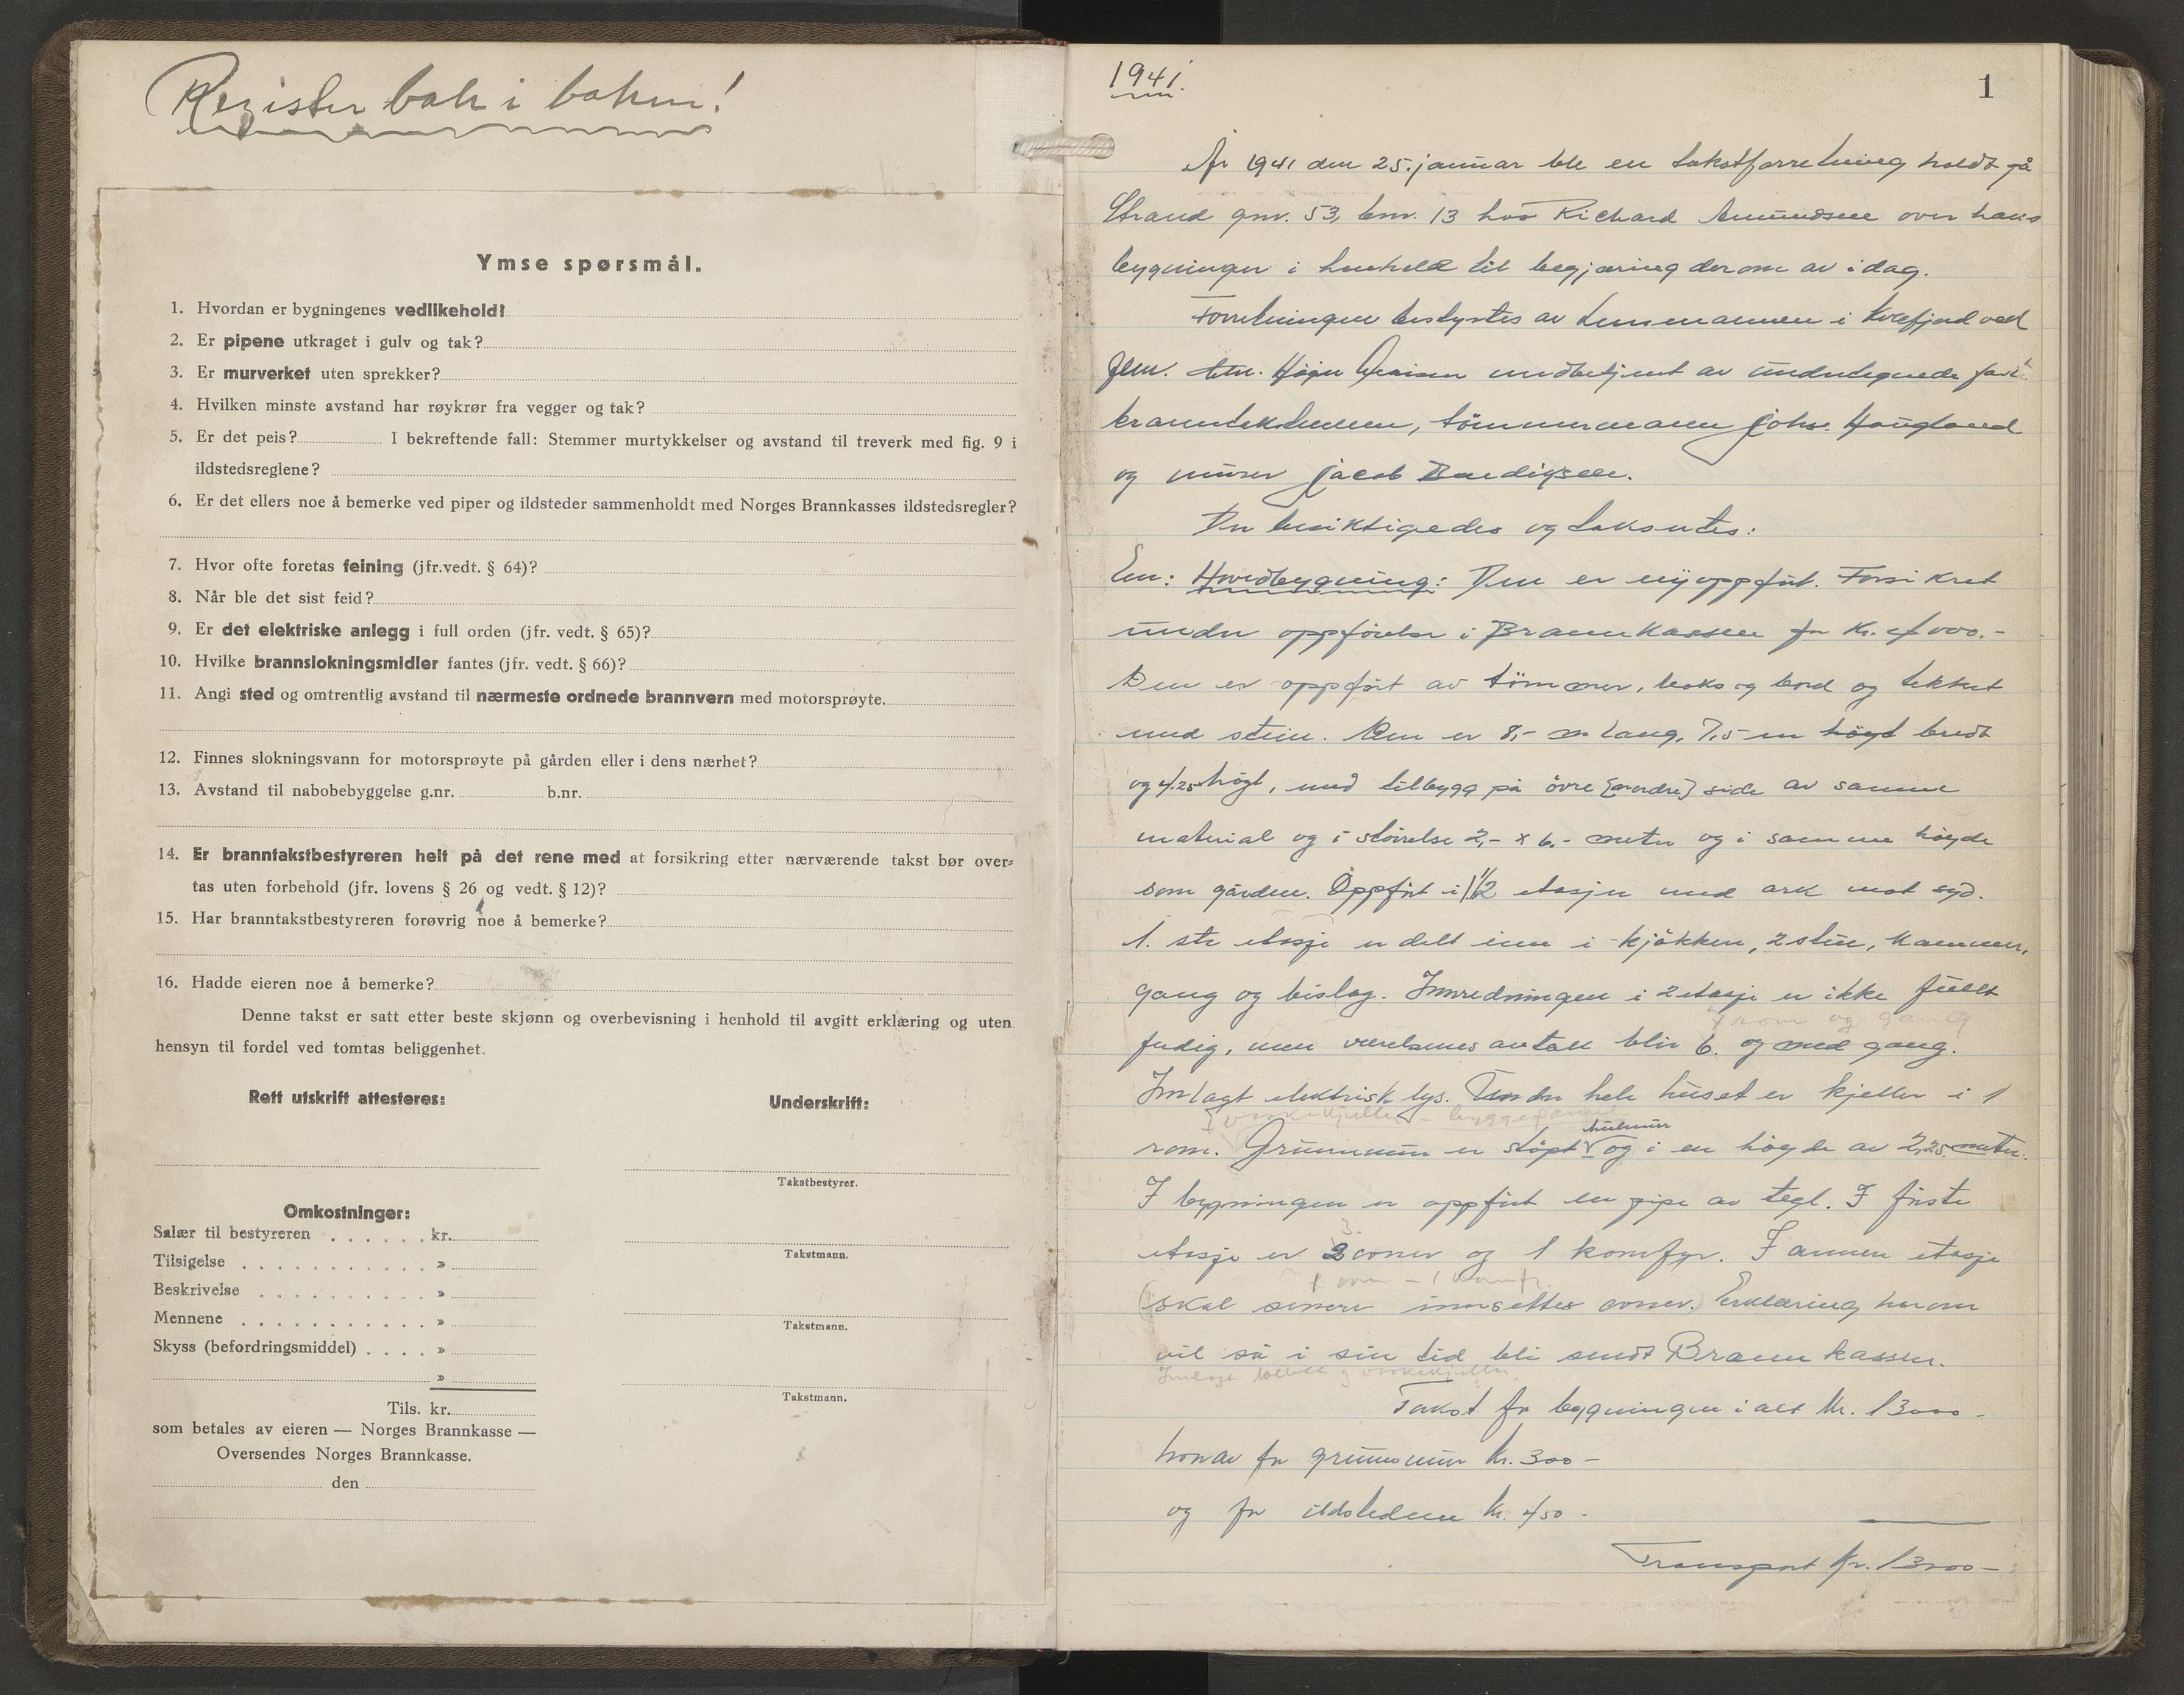 Register bak i boken!
Ymse spørsmål.
1. Hvordan er bygningenes vedlikehold?
2. Er pipene utkraget i gulv og tak?
3. Er murverket uten sprekker?
4. Hvilken minste avstand har røykrør fra vegger og tak?
5. Er det peis? I bekreftende fall: Stemmer murtykkelser og avstand til treverk med fig. 9 i
ildstedsreglene?
6. Er det ellers noe å bemerke ved piper og ildsteder sammenholdt med Norges Brannkasses ildstedsregler?
7. Hvor ofte foretas feining (jfr.vedt. § 64)?
8. Når ble det sist feid?
9. Er det elektriske anlegg i full orden (jfr. vedt. § 65)?
10. Hvilke brannslokningsmidler fantes (jfr. vedt. § 66)?
11. Angi sted og omtrentlig avstand til nærmeste ordnede brannvern med motorsprøyte.
12. Finnes slokningsvann for motorsprøyte på gården eller i dens nærhet?
13. Avstand til nabobebyggelse g.nr. b.nr.
14. Er branntakstbestyreren helt på det rene med at forsikring etter nærværende takst bør over-
tas uten forbehold (jfr. lovens § 26 og vedt. § 12)?
15. Har branntakstbestyreren forøvrig noe å bemerke?
16. Hadde eieren noe å bemerke?
Denne takst er satt etter beste skjønn og overbevisning i henhold til avgitt erklæring og uten
hensyn til fordel ved tomtas beliggenhet.
Rett utskrift attesteres:
Underskrift:
Takstbestyrer.
Omkostninger:
Salær til bestyreren . . . . . . kr.
Takstmann.
Tilsigelse . . . . . . . . . . . »
Beskrivelse . . . . . . . . . . »
Mennene . . . . . . . . . . . »
Takstmann.
Skyss (befordringsmiddel) . . . . »
»
Takstmann.
Tils. kr.
som betales av eieren — Norges Brannkasse —
Oversendes Norges Brannkasse.
den
1941.
1
År 1941 den 25. januar ble en takstforretning holdt på
Strand gnr. 53, bnr. 13 hos Richard Amundsen over hans
bygninger i henhold til begjæring derom av idag.
Forretningen bestyrtes av Lensmannen i Kvæfjord ved
medbetjent av undertegnede faste
branntakstmenn, tömmermann Johs. Haugland
og murer Jacob Bendiksen.
Der besiktigedes og taksertes:
En: Hovedbygning: Den er nyoppført. Forsikret
under oppförelse i Brannkassen for kr. 4000.-
Den er oppfört av tömmer, boks og bord og tekket
med stein. Den er 8,- m lang, 7,5 m högt bredt
og 4.25 högt, med tilbygg på övre {nordre} side av samme
material og i störrelse 2,- x 6.- meter og i samme höyde
som gården. Oppfört i 1 1/2 etasjer med ark mot syd.
1. ste etasje er delt inn i kjökken, 2 stuer, kammer,
gang og bislag. Innredningen i 2 etasje er ikke fullt
7 rom og gang
ferdig, men værelsenes antall blir 6. og med gang.
Innlagt elektrisk lys. Under hele huset er kjeller i 1
hulmur
rom. Grunnmur er støpt og i en høyde av 2,25 meter.
I bygningen er oppfört en pipe av tegl. I förste
3
etasje er 2 ovner og 1 komfyr. I annen etasje
1 ovn - 1 komf.
(skal senere innsettes ovner.) Erklæring herom
vil så i sin tid bli sendt Brannkassen.
Innlagt toilett og vaskekjeller.
Takst for bygningen i alt kr. 13000-
herav for grunnmur kr. 300-
og for ildstedene kr. 450-
Transport kr. 13000-